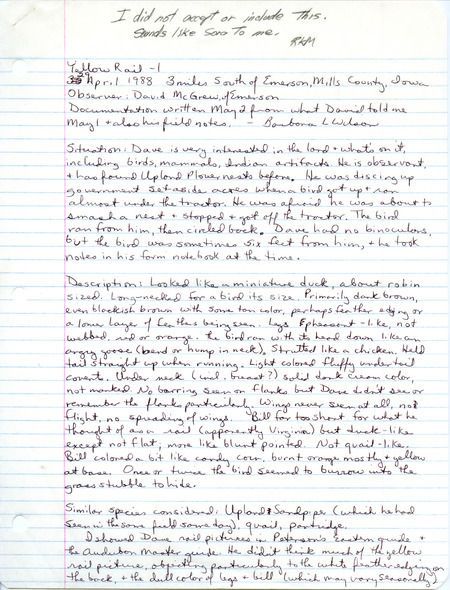 I did not accept or include this.
Sounds like Sora to me.
RKM
Yellow Rail - 1
29 April 1988 3 miles South of Emerson, Mills County, Iowa
Observer: David McGrew, Emerson
Documentation written May 2 from what David told me
May 1 + also his field notes. - Barbara L Wilson
Situation: Dave is very interested in the land + what's on it,
including birds, mammals, Indian artifacts. He is observant,
+ has found Upland Plover nests before. He was discing up
government set aside acres when a bird got up + ran
almost under the tractor. He was afraid he was about to
smash a nest + stopped + got off the tractor. The bird
ran from him, then circled back. Dave had no binoculars,
but the bird was sometimes six feet from him, + he took
notes in his farm notebook at the time.
Description: Looked like a miniature duck, about robin
sized. Long-necked for a bird its size. Primarily dark brown,
even blackish brown with some tan color, perhaps feather edging or
a lower layer of feathers being seen. Legs pheasant-like, not
webbed, red or orange. The bird ran with its head down like an
angry goose (bend or hump in neck). Strutted like a chicken. Held
tail straight up when running. Light colored fluffy undertail
covert. Under neck (incl. breast?) solid dark cream color,
not marked. No barring seen on flanks but Dave didn't see or
remember the flanks particularly. Wings never seen at all, no
flight, no spreading of wings. Bill far too short for what he
thought of as a rail (apparently Virginia) but duck-like
except not flat, more like blunt pointed. Not quail-like.
Bill colored a bit like candy corn, burnt orange mostly + yellow
at base. Once or twice the bird seemed to burrow into the
grass stubble to hide.
Similar species considered: Upland Sandpiper (which he had
seen in the same field same day), quail, partridge.
I showed Dave rail pictures in Peterson's Eastern guide +
the Audubon Master guide. He didn't think much of the yellow
rail picture, objecting particularly to the white feather edging on
the back, + the dull color of legs + bill (which may vary seasonally)